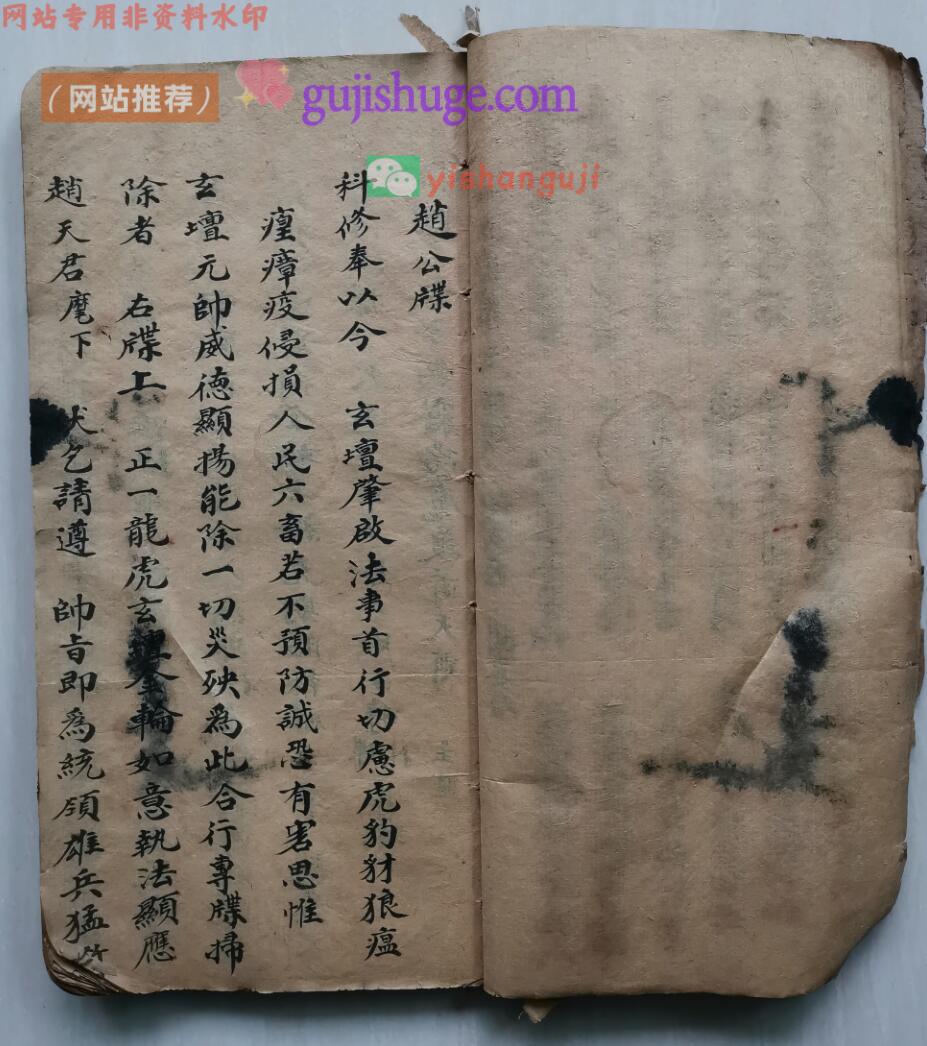 网站专用非资料水印
（网站推荐）
gujishuge.com
yishanguji
趙公牒
科修奉以今 玄壇肇啟法事首行切慮虎豹豺狼瘟
瘟瘴疫侵損人民六畜若不預防誠恐有害思惟
玄壇元帥威德顯揚能除一切災殃爲此合行專牒掃
除者 右牒上 正一龍虎玄壇金輪如意執法顯應
趙天君麾下 伏乞請遵 帥旨即爲統領雄兵猛